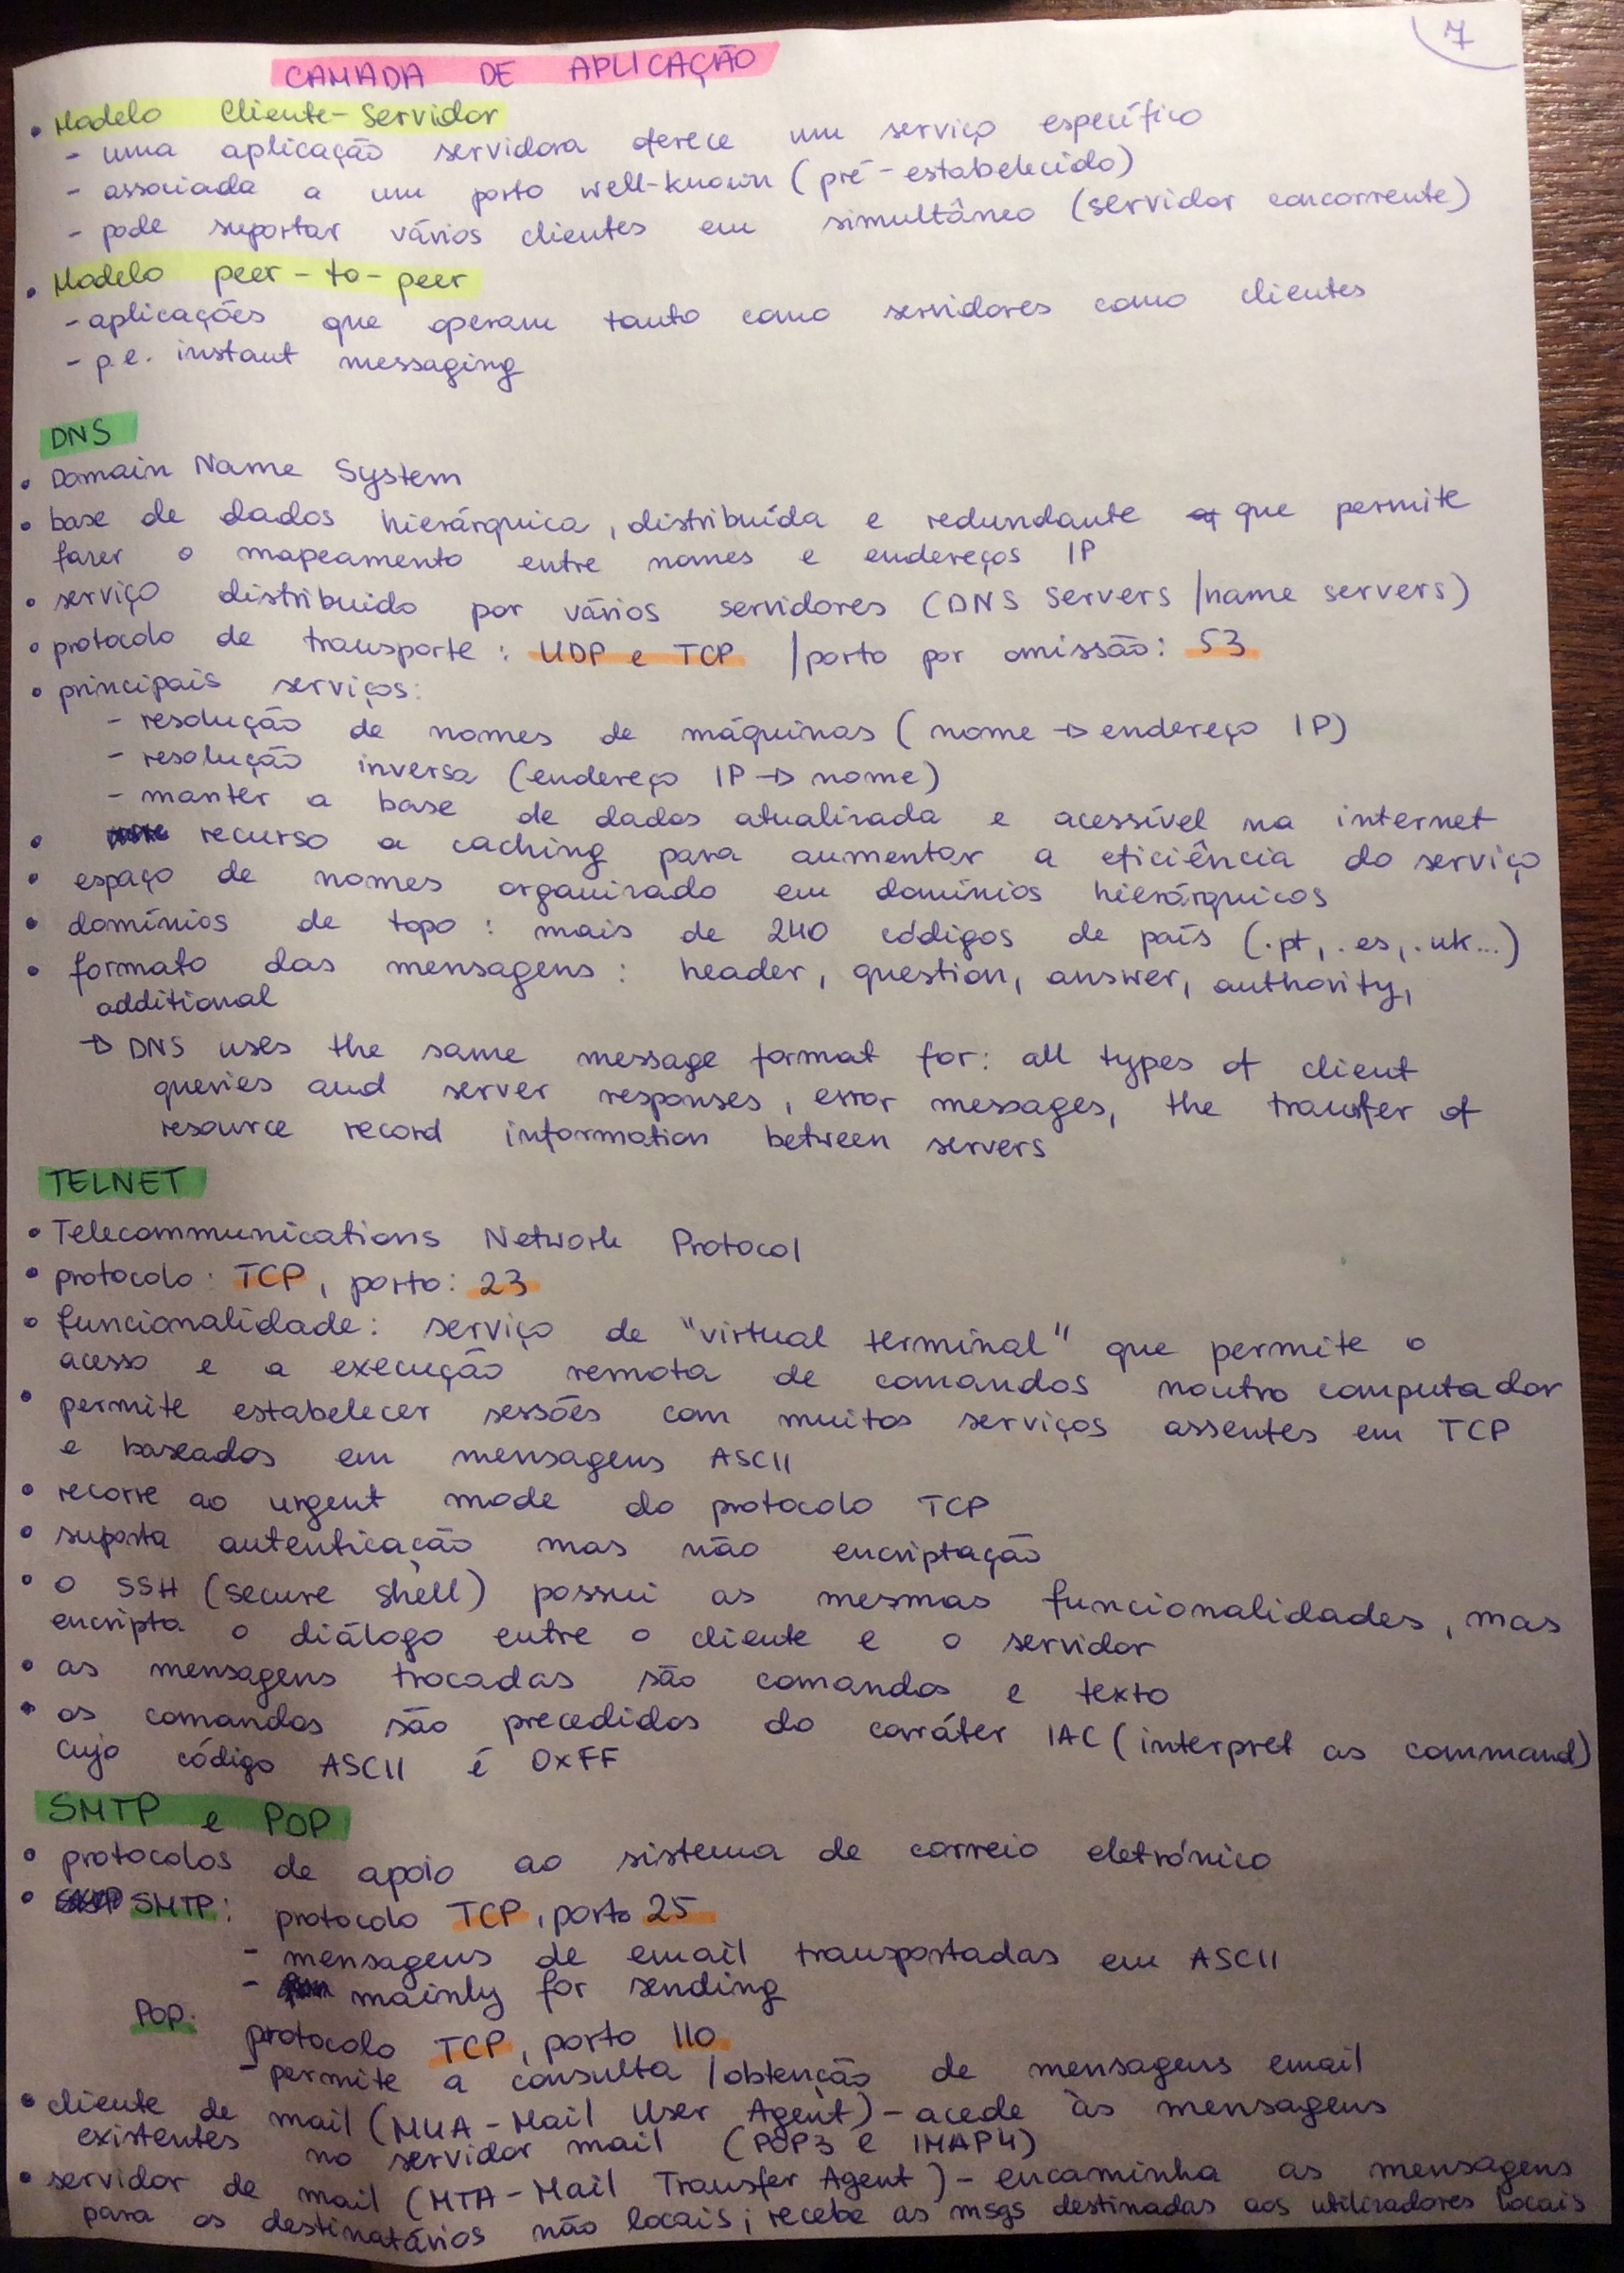 7
CAMADA DE APLICAÇÃO
• Modelo Cliente-Servidor
- uma aplicação servidora oferece um serviço específico
- associada a um porto well-known (pré-estabelecido)
- pode suportar vários clientes em simultâneo (servidor concorrente)
• Modelo peer-to-peer
- aplicações que operam tanto como servidores como clientes
- p.e. instant messaging
DNS
• Domain Name System
• base de dados hierárquica, distribuída e redundante que permite
fazer o mapeamento entre nomes e endereços IP
• serviço distribuido por vários servidores (DNS servers / name servers)
• protocolo de transporte: UDP e TCP / porto por omissão: 53
• principais serviços:
- resolução de nomes de máquinas (nome → endereço IP)
- resolução inversa (endereço IP → nome)
- manter a base de dados atualizada e acessível na internet
• recurso a caching para aumentar a eficiência do serviço
• espaço de nomes organizado em domínios hierárquicos
• domínios de topo: mais de 240 códigos de país (.pt, .es, .uk...)
• formato das mensagens: header, question, answer, authority,
additional
→ DNS uses the same message format for: all types of client
queries and server responses, error messages, the transfer of
resource record information between servers
TELNET
• Telecommunications Network Protocol
• protocolo: TCP, porto: 23
• funcionalidade: serviço de "virtual terminal" que permite o
acesso e a execução remota de comandos noutro computador
• permite estabelecer sessões com muitos serviços assentes em TCP
e baseados em mensagens ASCII
• recorre ao urgent mode do protocolo TCP
• suporta autenticação mas não encriptação
• o SSH (secure shell) possui as mesmas funcionalidades, mas
encripta o diálogo entre o cliente e o servidor
• as mensagens trocadas são comandos e texto
• os comandos são precedidos do caráter IAC (interpret as command)
cujo código ASCII é 0xFF
SMTP e POP
• protocolos de apoio ao sistema de correio eletrónico
• SMTP: protocolo TCP, porto 25
- mensagens de email transportadas em ASCII
- mainly for sending
POP: protocolo TCP, porto 110
- permite a consulta / obtenção de mensagens email
• cliente de mail (MUA - Mail User Agent) - acede às mensagens
existentes no servidor mail (POP3 e IMAP4)
• servidor de mail (MTA - Mail Transfer Agent) - encaminha as mensagens
para os destinatários não locais; recebe as msgs destinadas aos utilizadores locais